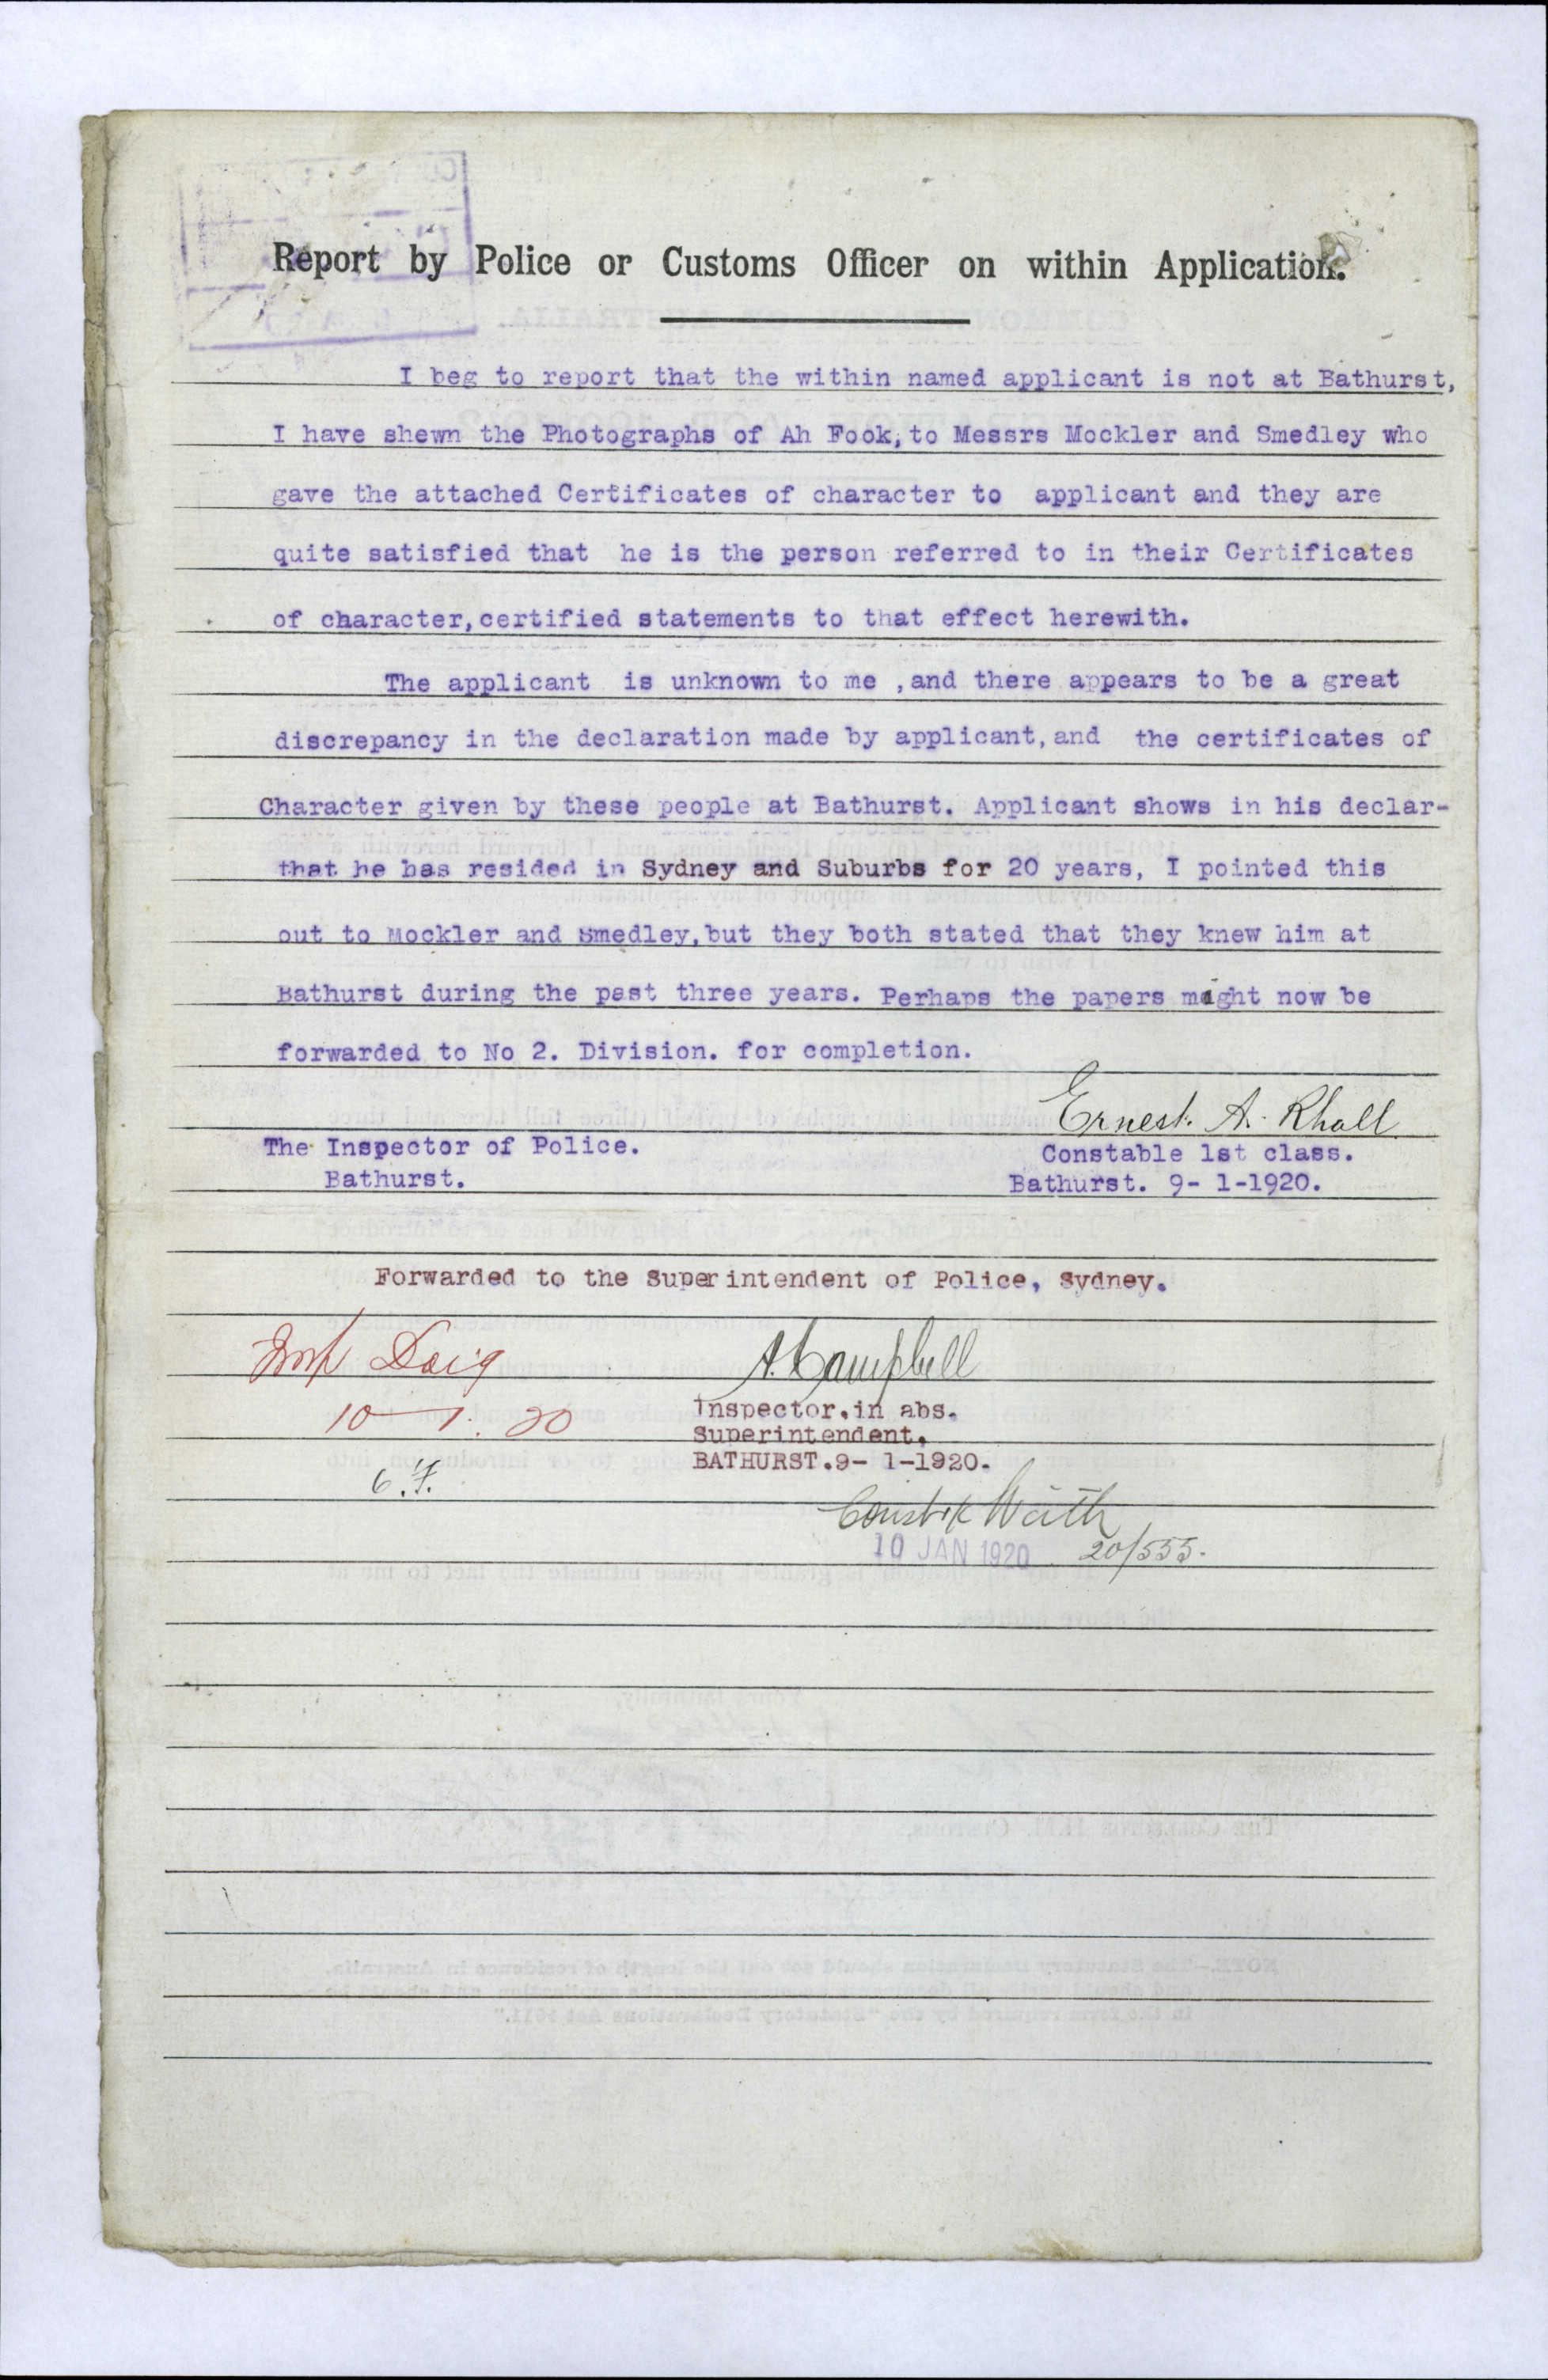 Report by Police or Customs Officer on within Application.
I beg to report that the within named applicant is not at Bathurst,
I have shewn the Photographs of Ah Fook, to Messrs Mockler and Smedley who
gave the attached Certificates of character to applicant and they are
quite satisfied that he is the person referred to in their Certificates
of character, certified statements to that effect herewith.
The applicant is unknown to me ,and there appears to be a great
discrepancy in the declaration made by applicant, and the certificates of
Character given by these people at Bathurst. Applicant shows in his declar-
that he has resided in Sydney and Suburbs for 20 years, I pointed this
out to Mockler and Smedley, but they both stated that they knew him at
Bathurst during the past three years. Perhaps the papers might now be
forwarded to No 2. Division. for completion.
Ernest. A. Rhall
The Inspector of Police.
Constable 1st class.
Bathurst.
Bathurst. 9- 1-1920.
Forwarded to the Superintendent of Police, Sydney.
Insp Doig
A. Campbell
10-1.20
Inspector.in abs.
Superintendent.
BATHURST.9- 1-1920.
Const.
10 JAN 1920
20/555.